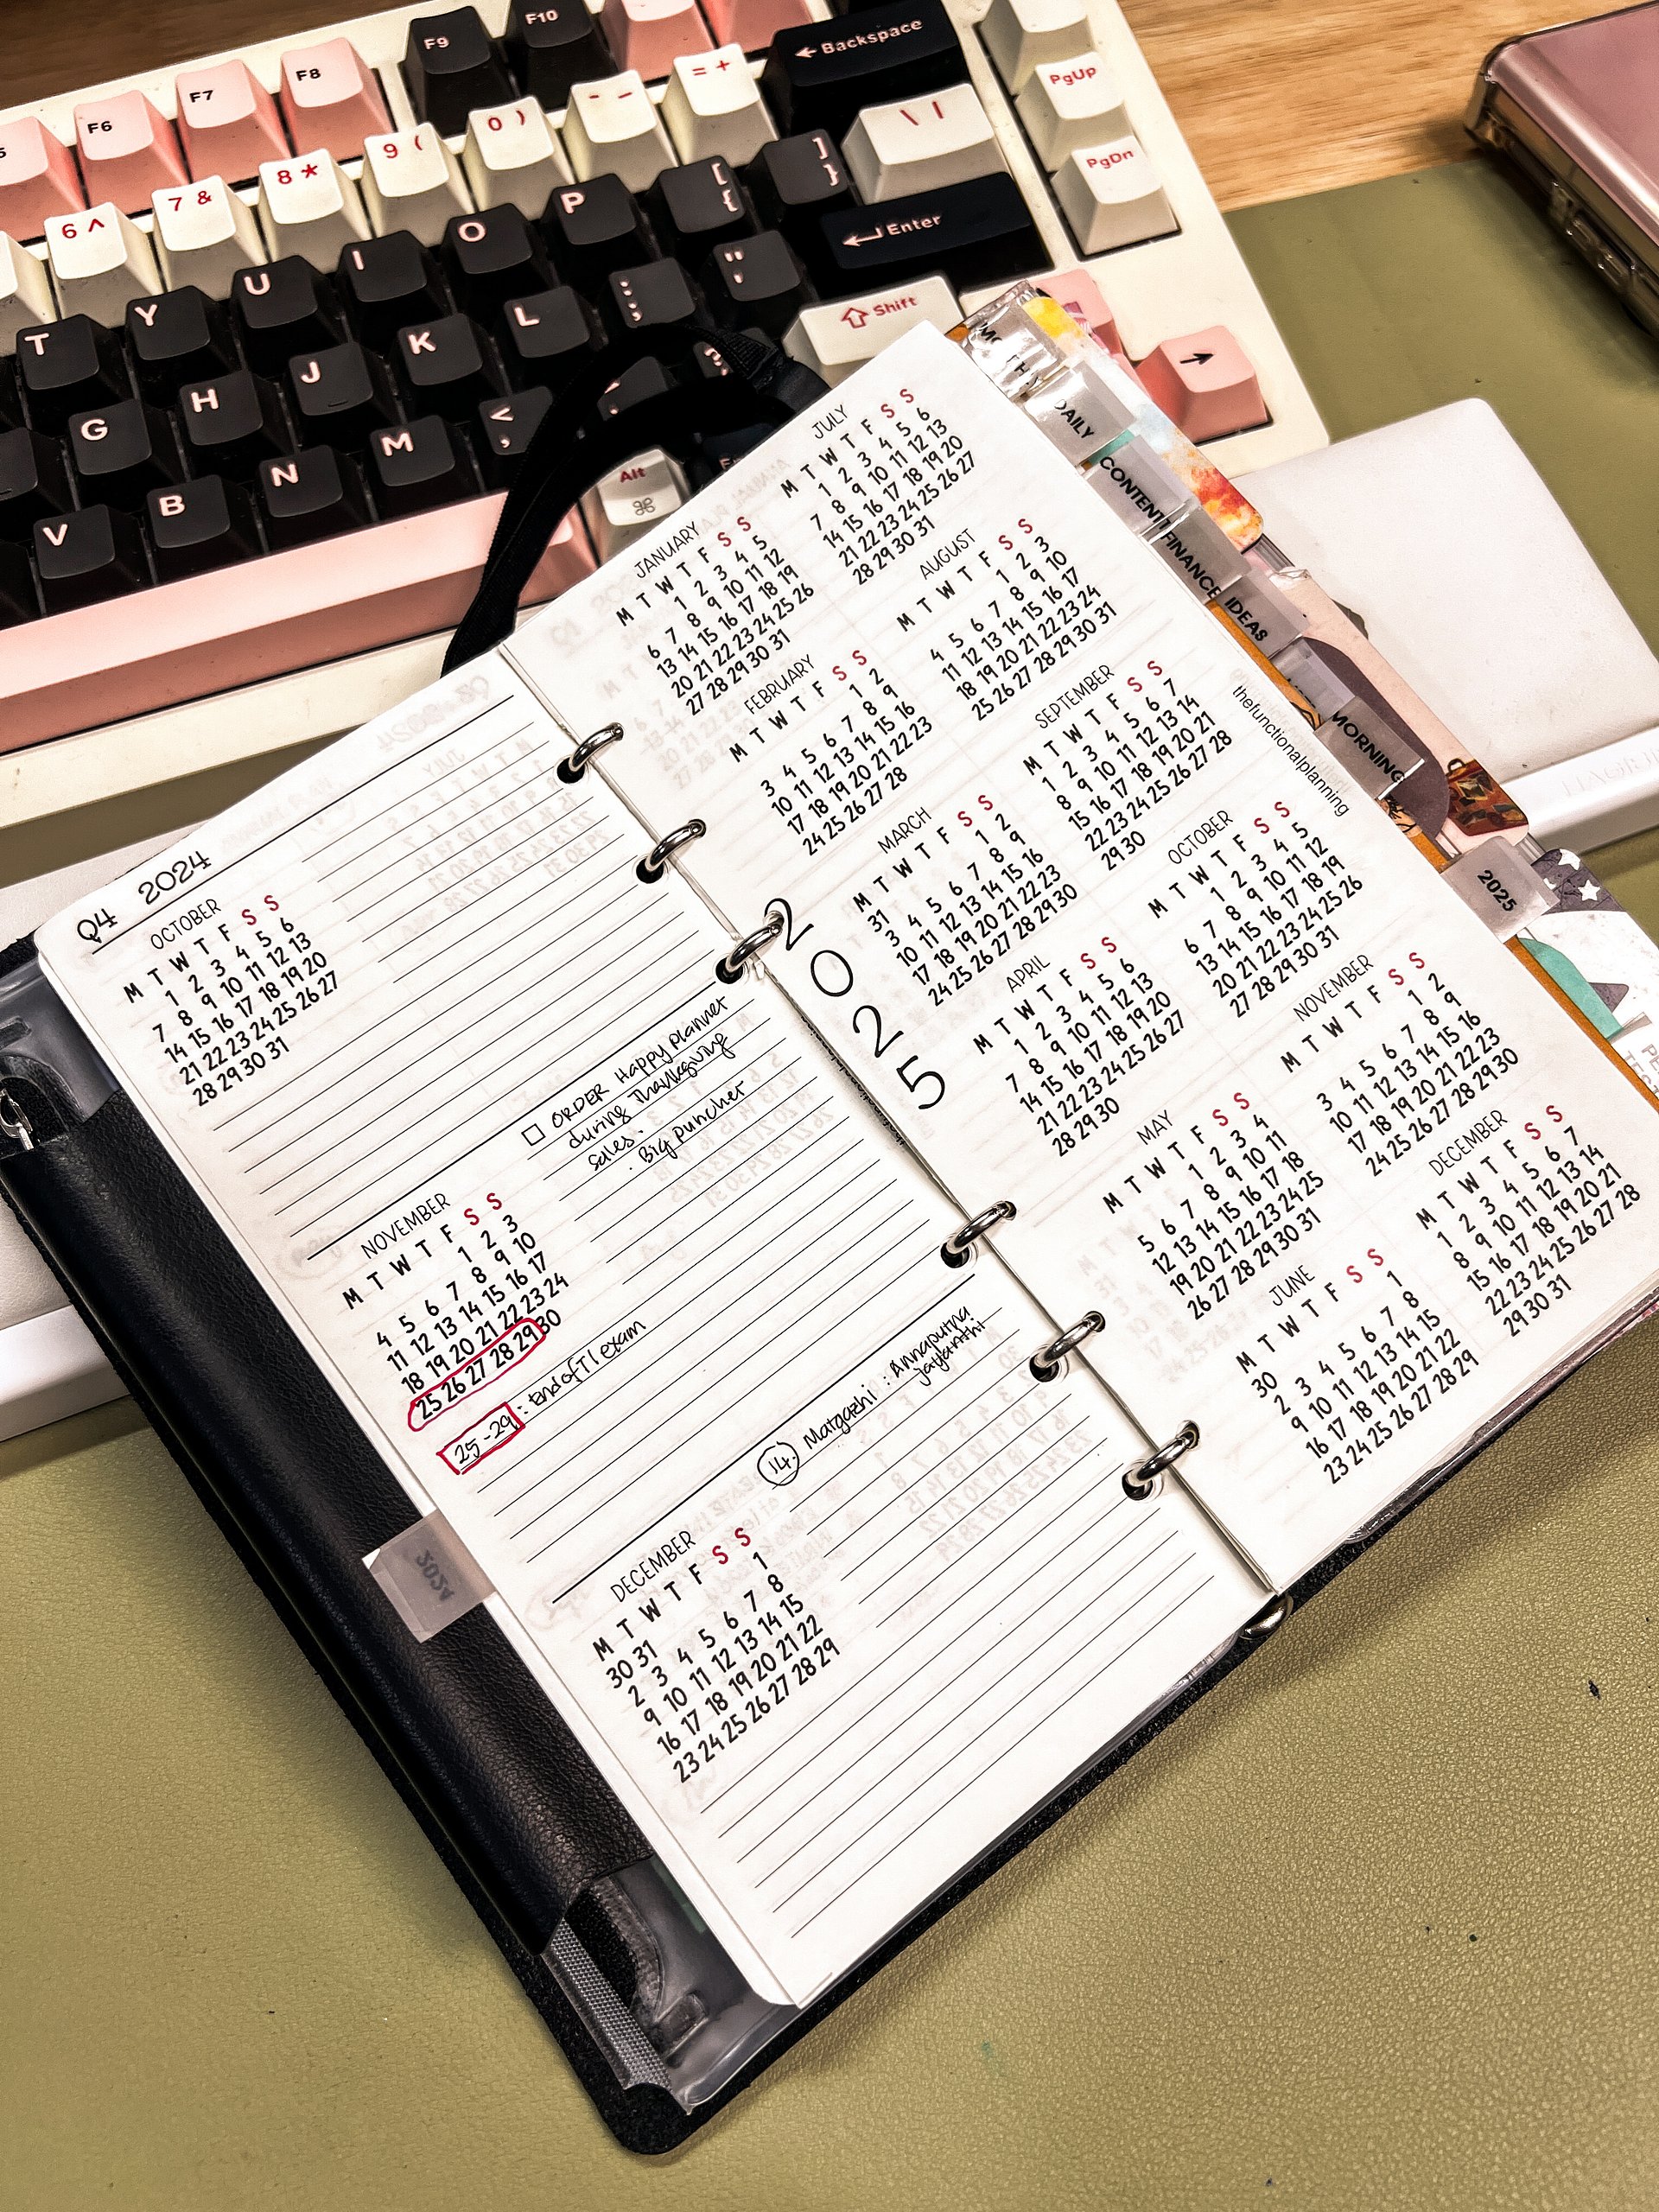 F9
F10
← Backspace
F6
F7
F8
= +
- _
0 )
9 (
8 *
7 &
6 ^
\ |
PgUp
PgDn
T Y U I O P [ { ] }
Enter
G H J K L ; : ' "
Shift
V B N M < ,
Alt
Q4 2024
OCTOBER
M T W T F S S
1 2 3 4 5 6
7 8 9 10 11 12 13
14 15 16 17 18 19 20
21 22 23 24 25 26 27
28 29 30 31
□ ORDER Happy planner
during Thanksgiving
sales.
. Big puncher
NOVEMBER
M T W T F S S
1 2 3
4 5 6 7 8 9 10
11 12 13 14 15 16 17
18 19 20 21 22 23 24
25 26 27 28 29 30
25-29 : End of T1 exam
14. Matgazhi : Annapurna
jayanthi
DECEMBER
M T W T F S S
30 31 1
2 3 4 5 6 7 8
9 10 11 12 13 14 15
16 17 18 19 20 21 22
23 24 25 26 27 28 29
2024
2025
JANUARY
M T W T F S S
1 2 3 4 5
6 7 8 9 10 11 12
13 14 15 16 17 18 19
20 21 22 23 24 25 26
27 28 29 30 31
FEBRUARY
M T W T F S S
1 2
3 4 5 6 7 8 9
10 11 12 13 14 15 16
17 18 19 20 21 22 23
24 25 26 27 28
MARCH
M T W T F S S
31 1 2
3 4 5 6 7 8 9
10 11 12 13 14 15 16
17 18 19 20 21 22 23
24 25 26 27 28 29 30
APRIL
M T W T F S S
1 2 3 4 5 6
7 8 9 10 11 12 13
14 15 16 17 18 19 20
21 22 23 24 25 26 27
28 29 30
MAY
M T W T F S S
1 2 3 4
5 6 7 8 9 10 11
12 13 14 15 16 17 18
19 20 21 22 23 24 25
26 27 28 29 30 31
JUNE
M T W T F S S
30 1
2 3 4 5 6 7 8
9 10 11 12 13 14 15
16 17 18 19 20 21 22
23 24 25 26 27 28 29
JULY
M T W T F S S
1 2 3 4 5 6
7 8 9 10 11 12 13
14 15 16 17 18 19 20
21 22 23 24 25 26 27
28 29 30 31
AUGUST
M T W T F S S
1 2 3
4 5 6 7 8 9 10
11 12 13 14 15 16 17
18 19 20 21 22 23 24
25 26 27 28 29 30 31
SEPTEMBER
M T W T F S S
1 2 3 4 5 6 7
8 9 10 11 12 13 14
15 16 17 18 19 20 21
22 23 24 25 26 27 28
29 30
OCTOBER
M T W T F S S
1 2 3 4 5
6 7 8 9 10 11 12
13 14 15 16 17 18 19
20 21 22 23 24 25 26
27 28 29 30 31
NOVEMBER
M T W T F S S
1 2
3 4 5 6 7 8 9
10 11 12 13 14 15 16
17 18 19 20 21 22 23
24 25 26 27 28 29 30
DECEMBER
M T W T F S S
1 2 3 4 5 6 7
8 9 10 11 12 13 14
15 16 17 18 19 20 21
22 23 24 25 26 27 28
29 30 31
thefunctionalplanning
DAILY
CONTENT
FINANCE
IDEAS
MORNING
2025